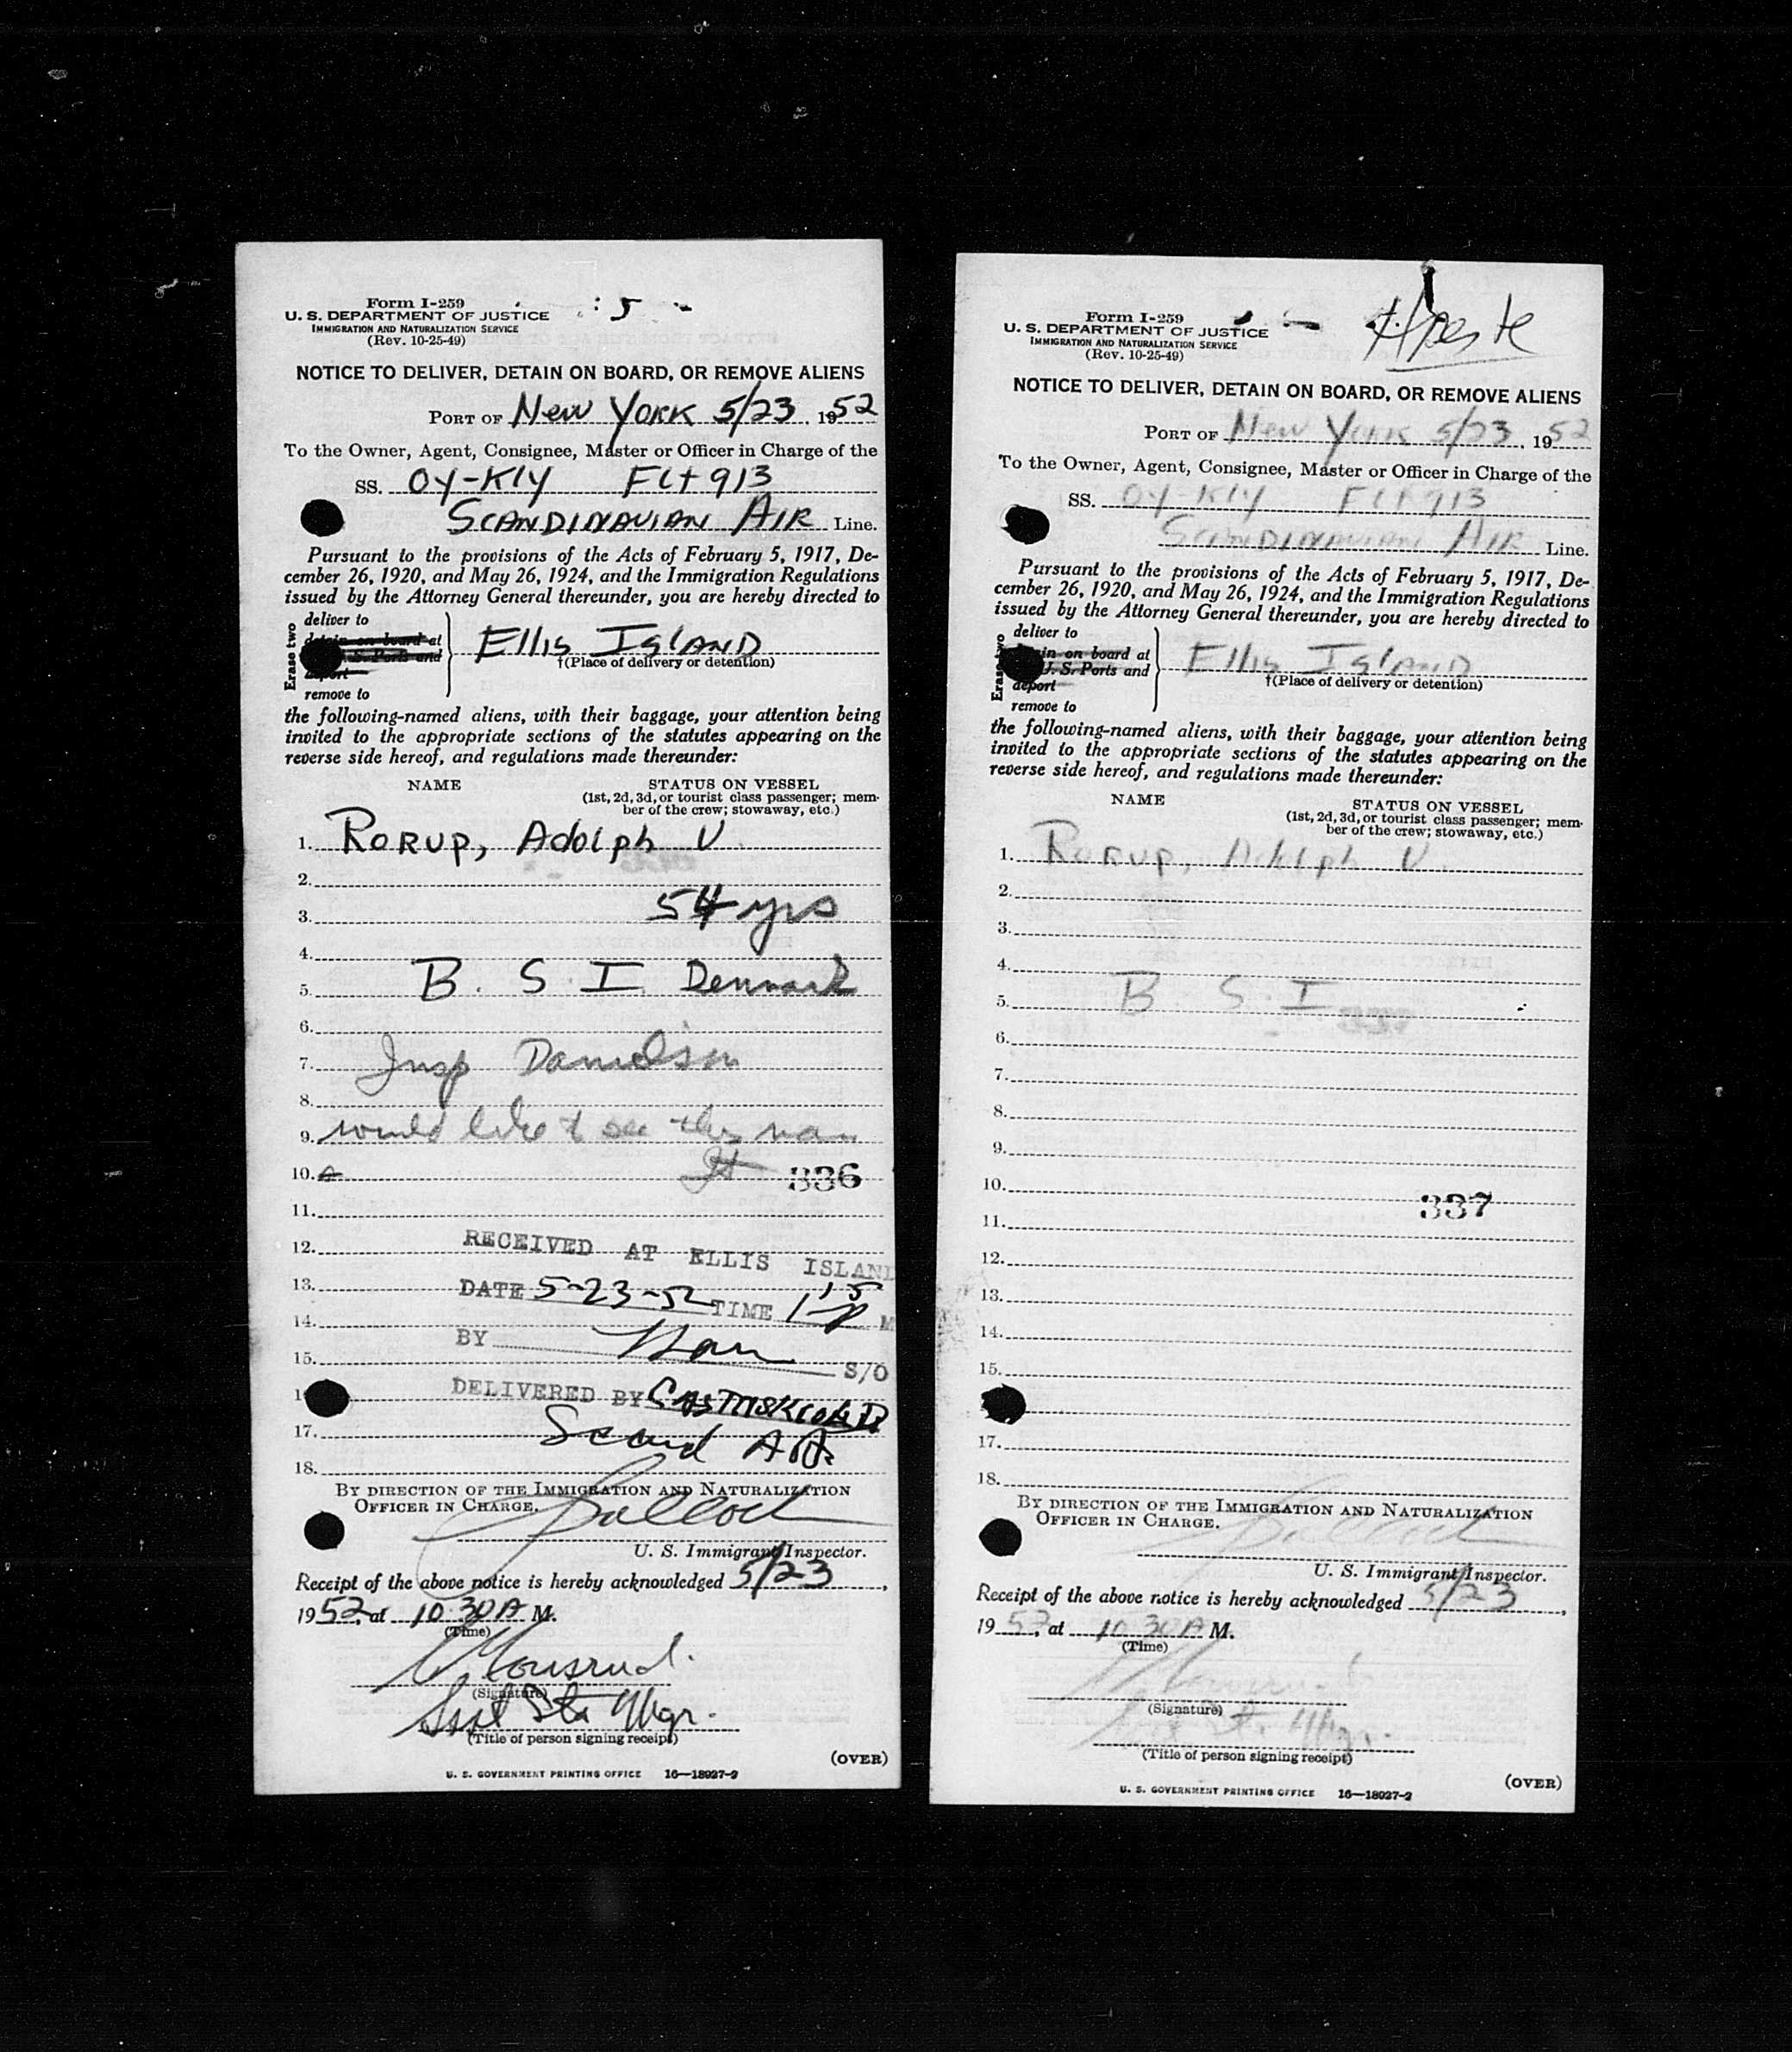 Form I-259
U. S. DEPARTMENT OF JUSTICE
IMMIGRATION AND NATURALIZATION SERVICE
(Rev. 10-25-49)
: 5 -
NOTICE TO DELIVER, DETAIN ON BOARD, OR REMOVE ALIENS
PORT OF New York 5/23, 1952
To the Owner, Agent, Consignee, Master or Officer in Charge of the
SS. OY-KLY FLT 913
SCANDINAVIAN AIR Line.
Pursuant to the provisions of the Acts of February 5, 1917, De-
cember 26, 1920, and May 26, 1924, and the Immigration Regulations
issued by the Attorney General thereunder, you are hereby directed to
Erase two
deliver to
detain on board at
U. S. Ports and
deport
remove to
Ellis Island
†(Place of delivery or detention)
the following-named aliens, with their baggage, your attention being
invited to the appropriate sections of the statutes appearing on the
reverse side hereof, and regulations made thereunder:
NAME STATUS ON VESSEL
(1st, 2d, 3d, or tourist class passenger; mem-
ber of the crew; stowaway, etc.)
1. Rorup, Adolph V.
2.
3. 54 yrs
4.
5. B. S. I. Denmark
6.
7. Insp Danielson
8.
9. would like to see this man
10. 336
11.
12. RECEIVED AT ELLIS ISLAND
13. DATE 5-23-52 TIME 1 15 P M
14.
BY S/O
15.
DELIVERED BY
17. Scand
18.
BY DIRECTION OF THE IMMIGRATION AND NATURALIZATION
OFFICER IN CHARGE.
U. S. Immigrant Inspector.
Receipt of the above notice is hereby acknowledged 5/23,
1952, at 10 30 A M.
(Time)
(Signature)
Asst Sta Mgr.
(Title of person signing receipt)
(OVER)
U. S. GOVERNMENT PRINTING OFFICE 16—18927-2
Form I-259
U. S. DEPARTMENT OF JUSTICE
IMMIGRATION AND NATURALIZATION SERVICE
(Rev. 10-25-49)
NOTICE TO DELIVER, DETAIN ON BOARD, OR REMOVE ALIENS
PORT OF New York 5/23, 1952
To the Owner, Agent, Consignee, Master or Officer in Charge of the
SS. OY-KLY FLT 913
SCANDINAVIAN AIR Line.
Pursuant to the provisions of the Acts of February 5, 1917, De-
cember 26, 1920, and May 26, 1924, and the Immigration Regulations
issued by the Attorney General thereunder, you are hereby directed to
Erase two
deliver to
detain on board at
U. S. Ports and
deport
remove to
Ellis Island
†(Place of delivery or detention)
the following-named aliens, with their baggage, your attention being
invited to the appropriate sections of the statutes appearing on the
reverse side hereof, and regulations made thereunder:
NAME STATUS ON VESSEL
(1st, 2d, 3d, or tourist class passenger; mem-
ber of the crew; stowaway, etc.)
1. Rorup, Adolph V.
2.
3.
4.
5. B S I
6.
7.
8.
9.
10.
337
11.
12.
13.
14.
15.
17.
18.
BY DIRECTION OF THE IMMIGRATION AND NATURALIZATION
OFFICER IN CHARGE.
U. S. Immigrant Inspector.
Receipt of the above notice is hereby acknowledged 5/23,
1952, at 10 30 A M.
(Time)
(Signature)
Asst St. Mgr.
(Title of person signing receipt)
(OVER)
U. S. GOVERNMENT PRINTING OFFICE 16—18927-2